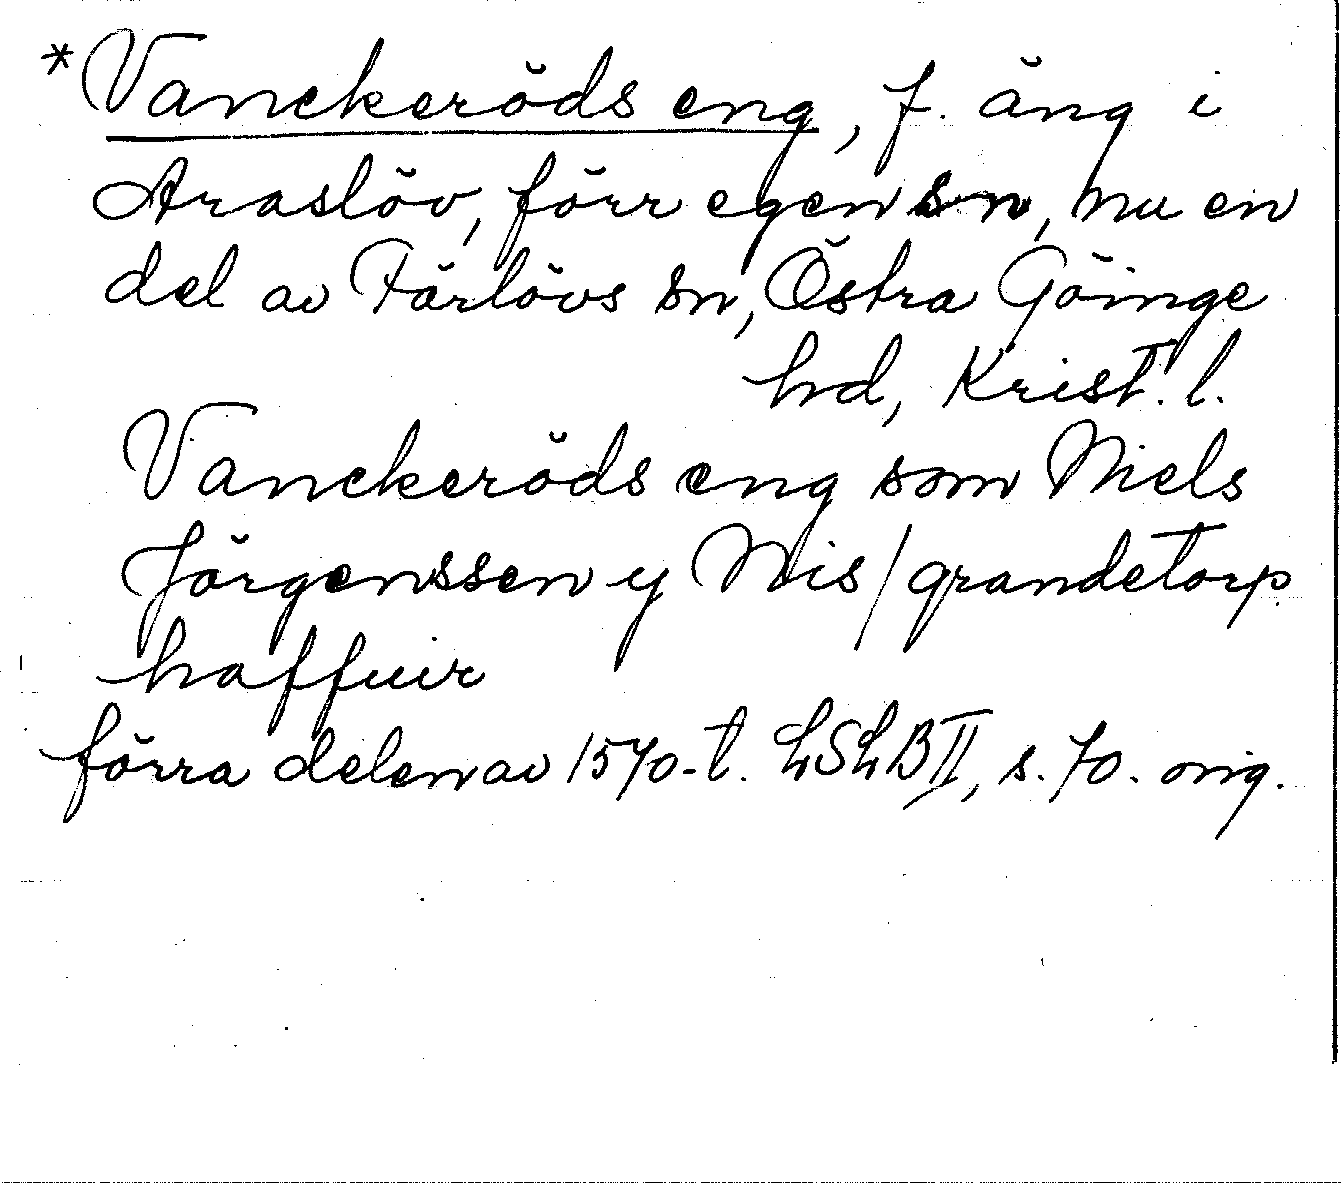 *Vanckeröds eng, f. äng i
Araslöv, förr egen sn, nu en
del av Färlövs sn, Östra Göinge
hd, Krist. l.
Vanckeröds eng som Niels
Jörgenssen y Nis/grandetorp
haffuir
förra delen av 1570-t. LSLB II, s. 70. orig.